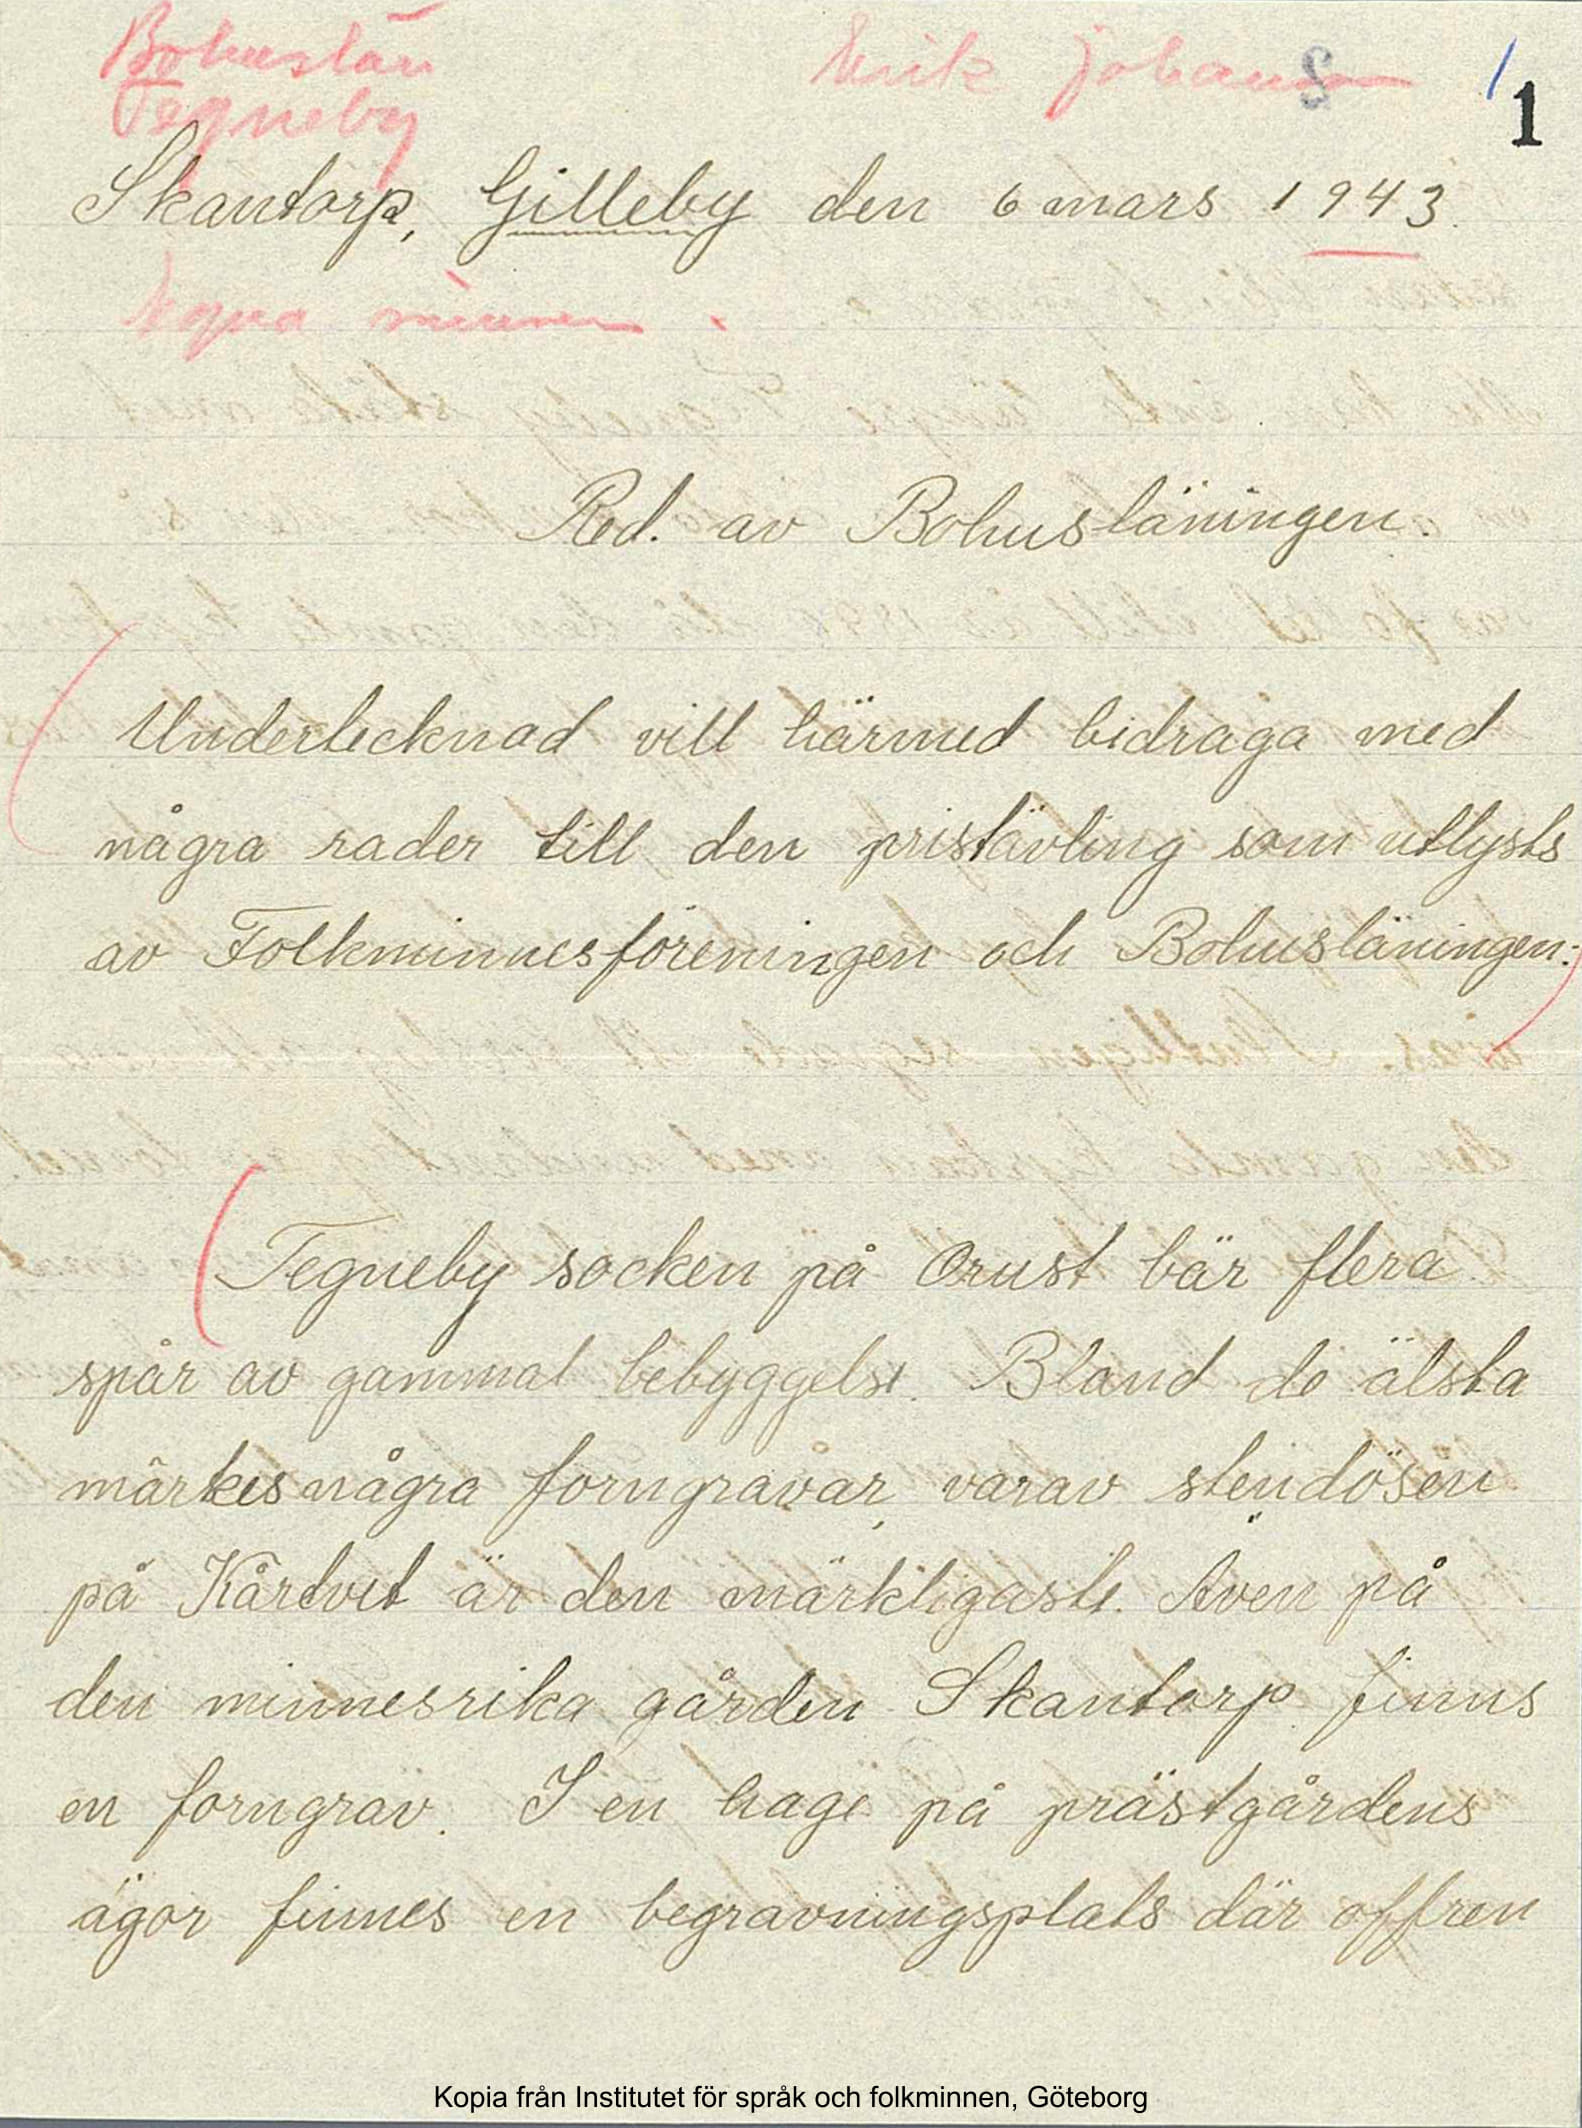 Bohuslän
Tegneby
Erik Johansson
S
1
1
Skantorp, Gilleby den 6 mars 1943.
Egna minnen.
Red. av Bohusläningen.
Undertecknad vill härmed bidraga med
några rader till den pristävling som utlysts
av Folkminnesföreningen och Bohusläningen:
Tegneby socken på Orust bär flera
spår av gammal bebyggelse. Bland de älsta
märkes några forngravar, varav stendösen
på Kårtvet är den märkligaste. Även på
den minnesrika gården Skantorp finns
en forngrav. I en hage på prästgårdens
ägor finnes en begravningsplats där offren
Kopia från Institutet för språk och folkminnen, Göteborg